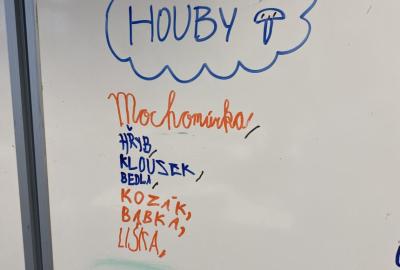 HOUBY
Mochomůrka,
HŘYB,
KLOUSEK,
BEDLA,
KOZÁK,
BABKA,
LIŠKA,